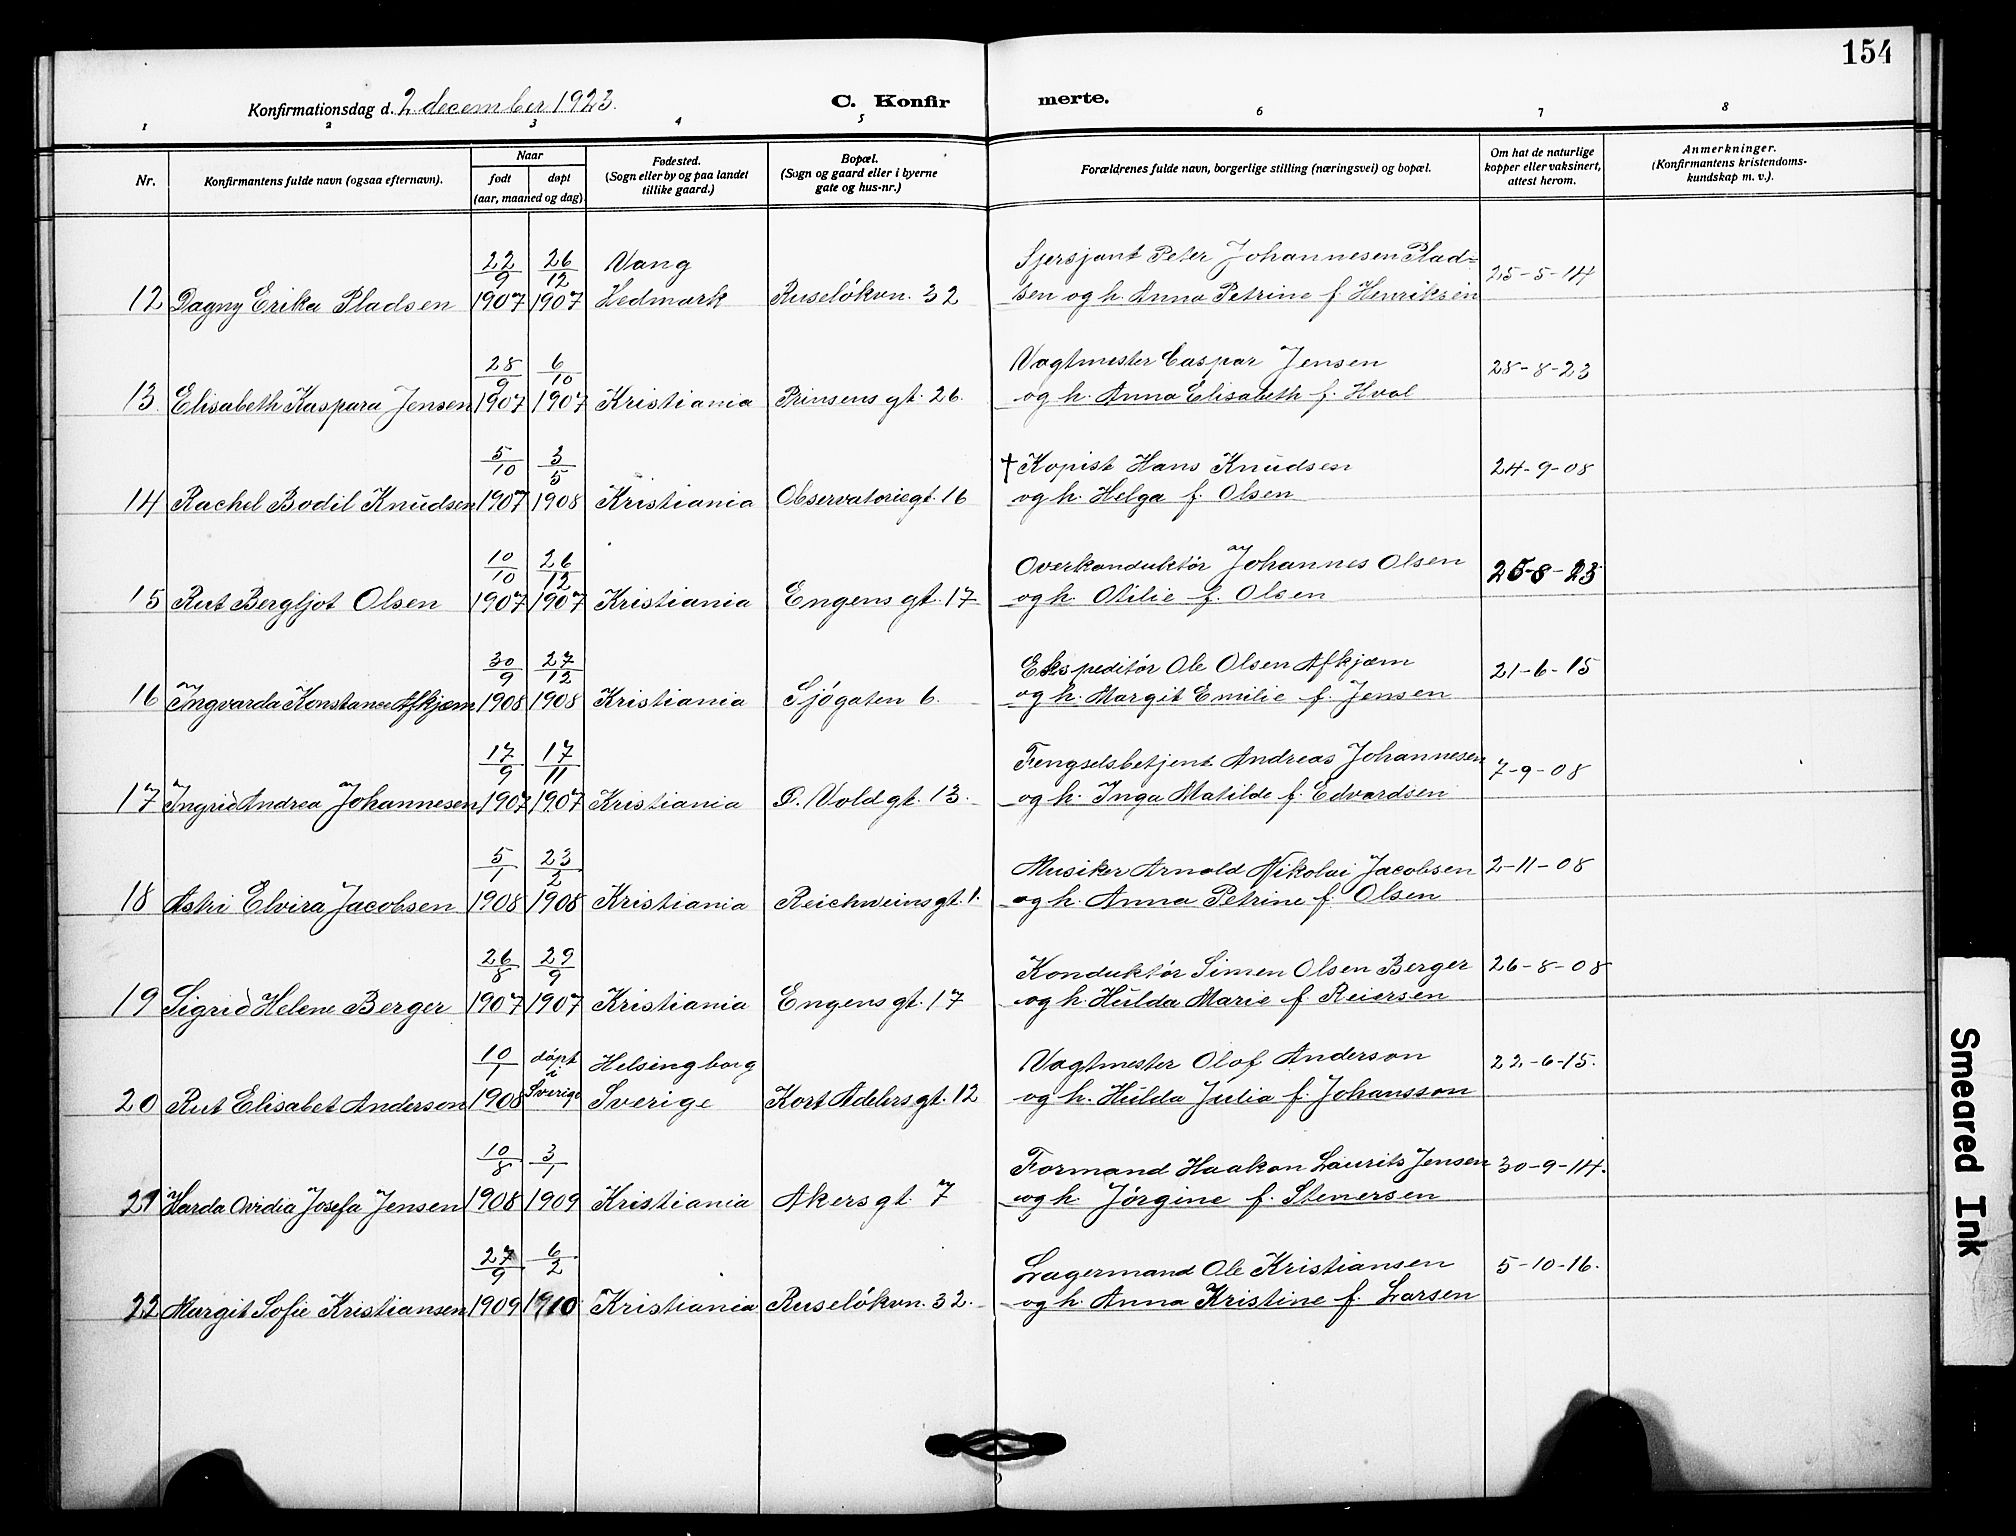 154
Konfirmationsdag d. 2 december 1923.
C. Konfirmerte.
1 2 3 4 5 6 7 8
Nr.
Konfirmantens fulde navn (ogsaa efternavn).
Naar
født døpt
(aar, maaned og dag)
Fødested.
(Sogn eller by og paa landet
tillike gaard.)
Bopæl.
(Sogn og gaard eller i byerne
gate og hus-nr.)
Forældrenes fulde navn, borgerlige stilling (næringsvei) og bopæl.
Om hat de naturlige
kopper eller vaksinert,
attest herom.
Anmerkninger.
(Konfirmantens kristendoms-
kundskap m. v.).
22/9 26/12 Vang Sjersjant Peter Johannesen Plad-
12 Dagny Erika Pladsen 1907 1907 Hedmark Ruseløkvn. 32 sen og h. Anna Petrine f. Henriksen 25-5-14
28/9 6/10 Vagtmester Caspar Jensen 28-8-23
13. Elisabeth Kaspara Jensen 1907 1907 Kristiania Prinsens gt. 26. og h. Anna Elisabeth f. Hval
5/10 3/5 † Kopist Hans Knudsen 24-9-08
14 Rachel Bodil Knudsen 1907 1908 Kristiania Observatoriegt. 16 og h. Helga f. Olsen
10/10 26/12 Overkonduktør Johannes Olsen 25-8-23
15 Rut Bergljot Olsen 1907 1907 Kristiania Engens gt. 17 og h. Otilie f. Olsen
30/9 27/12 Ekspeditør Ole Olsen Afkjæm 21-6-15
16 Ingvarda Konstance Afkjæm 1908 1908 Kristiania Sjøgaten 6. og h. Margit Emilie f. Jensen
17/9 17/11 Fengselsbetjent Andreas Johannesen 7-9-08
17 Ingrid Andrea Johannesen 1907 1907 Kristiania Ø. Vold gt. 13. og h. Inga Matilde f. Edvardsen
5/1 23/2 Musiker Arnold Nikolai Jacobsen 2-11-08
18 Astri Elvira Jacobsen 1908 1908 Kristiania Reichweins gt. 1. og h. Anna Petrine f. Olsen
26/8 29/9 Konduktør Simen Olsen Berger 26-8-08
19 Sigrid Helene Berger 1907 1907 Kristiania Engens gt. 17 og h. Hulda Marie f. Reiersen
10/1 døpt i Helsingborg Vagtmester Olof Anderson 22-6-15.
20 Rut Elisabet Anderson 1908 Sverige Sverige Kort Adelers gt. 12 og h. Hulda Julia f. Johansson
10/8 3/1 Formand Haakon Laurits Jensen 30-9-14.
21 Harda Ovidia Josefa Jensen 1908 1909 Kristiania Akers gt. 7 og h. Jørgine f. Stenersen
27/9 6/2 Lagermand Ole Kristiansen 5-10-16.
22 Margit Sofie Kristiansen 1909 1910 Kristiania Ruseløkvn. 32. og h. Anna Kristine f. Larsen
Smeared Ink